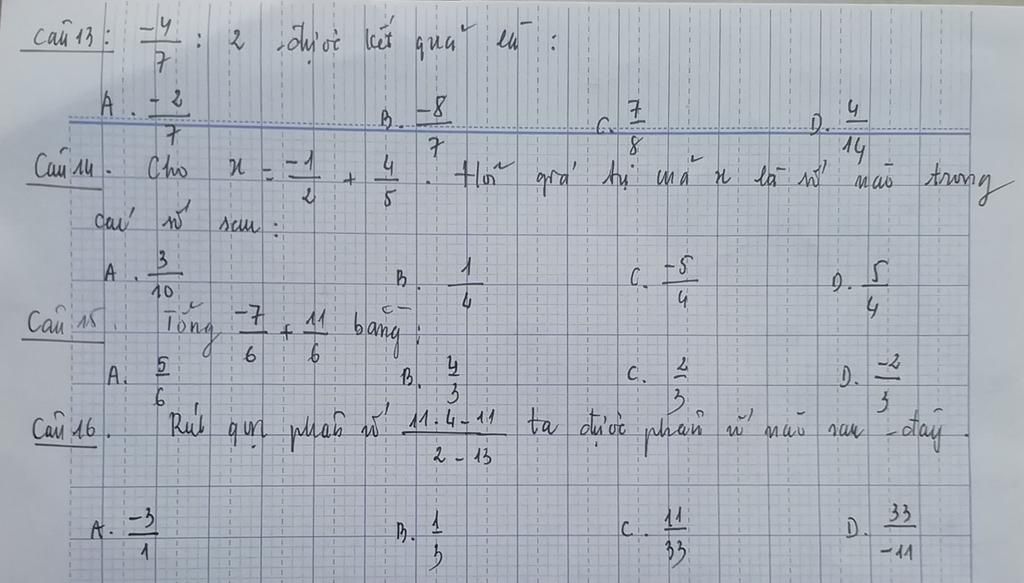 Câu 13: -4/7 : 2 được kết quả là :
A. -2/7 B. -8/7 C. 7/8 D. 4/14
Câu 14. Cho x = -1/2 + 4/5 . Hỏi giá trị của x là số nào trong
các số sau :
A. 3/10 B. 1/4 C. -5/4 D. 5/4
Câu 15. Tổng -7/6 + 11/6 bằng :
A. 5/6 B. 4/3 C. 2/3 D. -2/3
Câu 16. Rút gọn phân số 11.4-11/2-13 ta được phân số nào sau đây.
A. -3/1 B. 1/3 C. 11/33 D. 33/-11